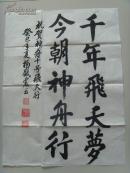 千年飛天夢
今朝神舟行
祝賀神舟十号飛天行
癸巳年夏